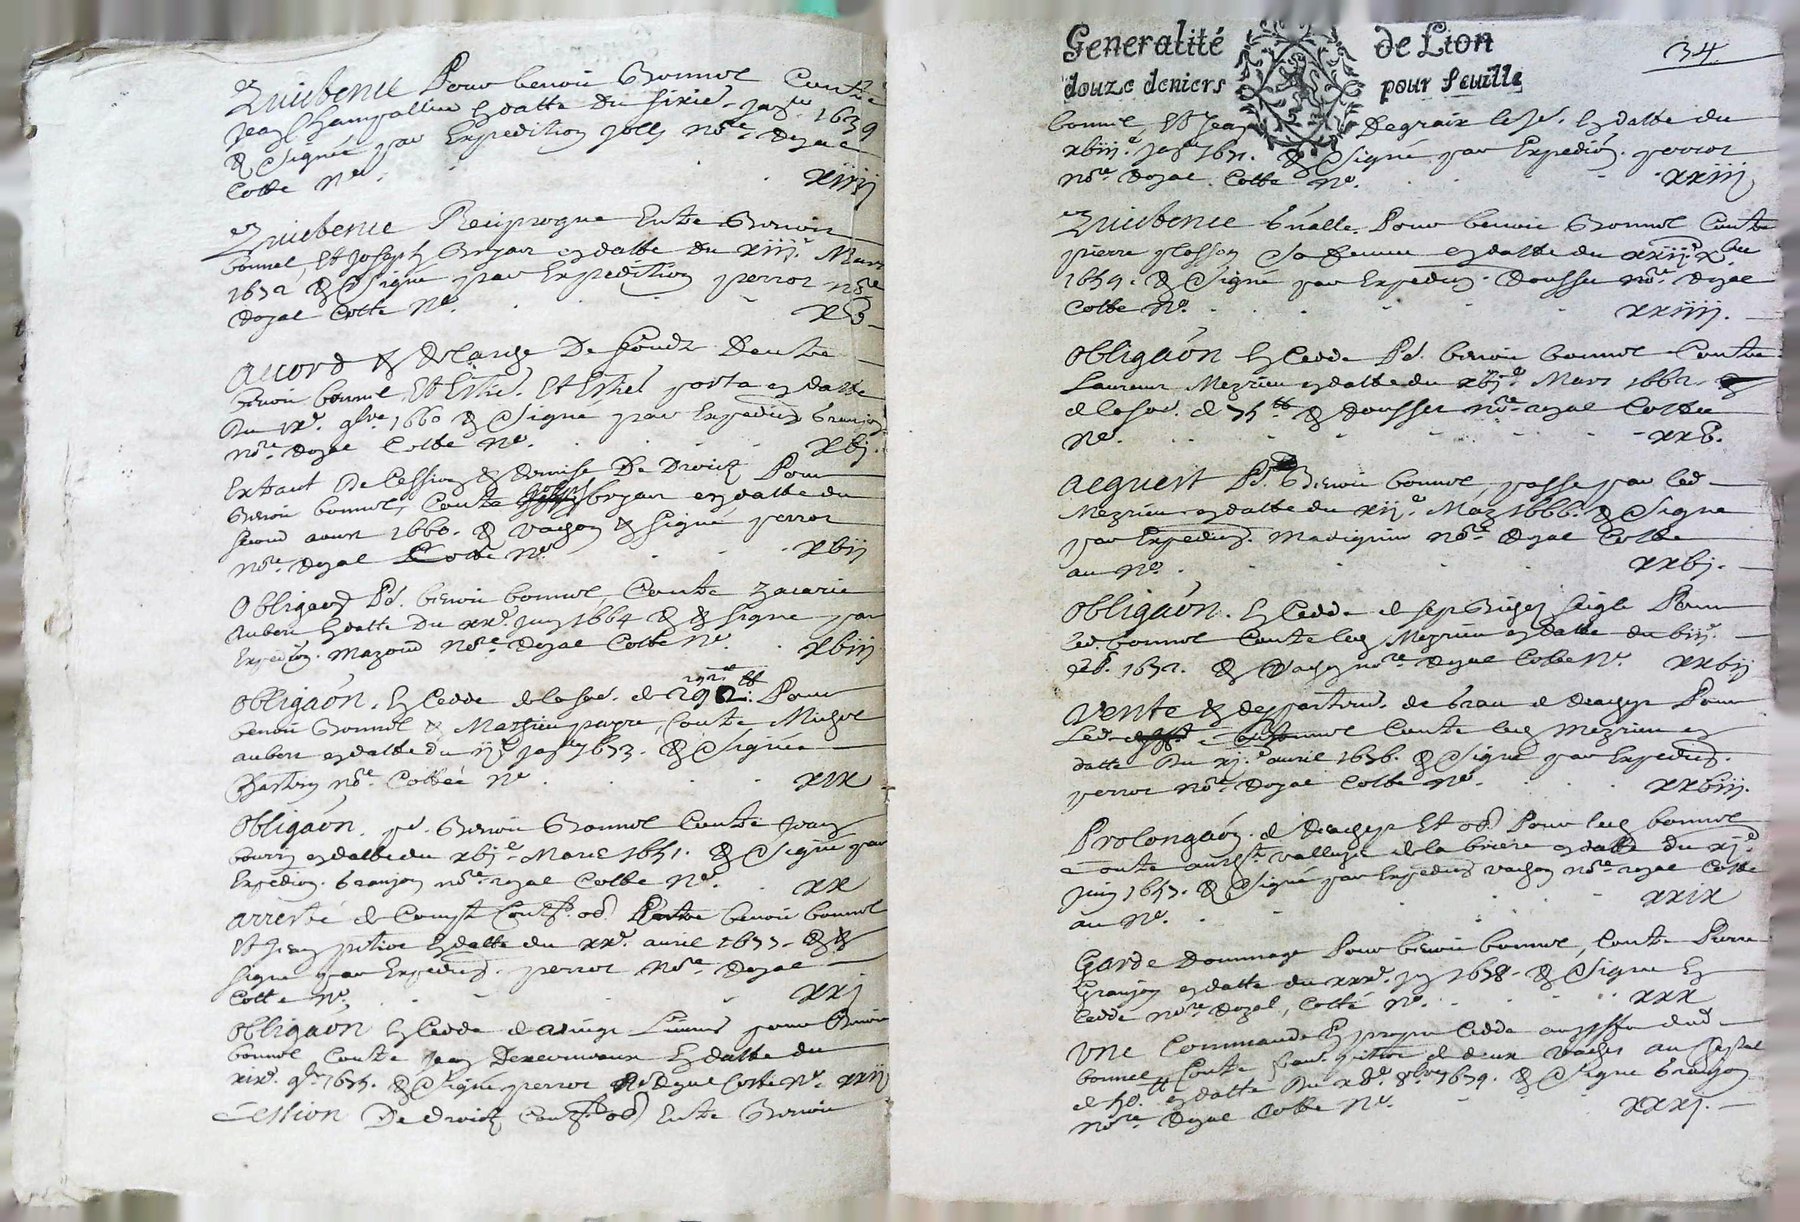 Quictence Pour benoit Bonnel Contre
Jean Champallier En datte du sixie. Janr. 1639
& Signée par Expedition Jolly Nore. Royal
Cotté No. xiiij
Quictence Reciproque Entre Benoit
bonnel, Et Joseph Boyar en datte du xiiije. Mars
1652 & Signe par Expedition perrot nore.
Royal Cotté No. xv
accord & Eschange De fondz D'entre
benoit bonnel Et Estie. Et Estiel porta en datte
Du ixe. 9bre. 1660 & Signe par Expedion granjon
nore. Royal Cotté No. xvj.
Extrait De Cession & Remise De Droictz Pour
Benoit bonnel, Contre Joseph boyar en datte du
second aoust 1660. & vachon & signé perrot
Nore. Royal Cotté No. xvij
Obligaon Pd. benoit bonnel, Contre Zacarie
Aubert En datte Du xxe. Juin 1664 & signe par
Expedion. Mazoud Nore. Royal Cotté No. xviij
Obligaon. En Cedde de la som. de 292 ₶: Pour
benoit Bonnel & Mathieu payre, Contre Michel
aubert en datte du ije Janr 1653. & Signée
Chastory nore. Cottée No. xix
Obligaon. pd. Benoit Bonnel Contre Jean
bourrin en datte du xvje. Mars 1651. & Signé par
Expedion. Granjon nore. royal Cotté No. xx
arresté de Compte Contt. ob. Entre benoit bonnel
Et Jean pitiot En datte du xxe. avril 1655. &
Signe par Expedion. perrot Nore. Royal
Cotté No. xxj
Obligaon En Cedde de Livres pour Benoit
bonnel Contre Jean En datte du
xixe. 9bre 1655. & Signé perrot Nore Royal Cotté No. xxij
Cession De droictz Contt. ob. Entre Benoit
Generalité de Lion
douze deniers pour feuille
34
bonnel, Et Jean Degraix En datte du
xviije. Janr 1651. & Signé par Expedion. perrot
nore. Royal. Cotté No. xxiij
Quictence finalle Pour benoit Bonnel Contre
pierre Sa femme en datte du xxiije. xbre
1659. & Signé par Expedion. Dousset nore. Royal
Cotté No. xxiiij.
Obligaon En Cedde Pd. benoit bonnel Contre
Laurent Mezrieu en datte du xvje. Mars 1662.
de la som. de 75 ₶ & Dousset nore. royal Cottée
No. xxv.
acquest Pd. Benoit bonnel passé par led.
Mezrieu en datte du xije. May 1666. & Signe
par Expedion. Matignieu nore. Royal Cotté
au No. xxvj.
Obligaon. En Cedde de sept Bichetz seigle Pour
led. bonnel Contre led. Mezrieu en datte du viije.
1652. & Vachon nore. Royal Cotté No. xxvij
Vente & departem. de brau & Vaches Pour
Led. bonnel Contre led. Mezrieu en
datte du xje. avril 1656. & Signe par Expedion.
perrot nore. Royal Cotté No. xxviij.
Prolongaon. de Vaches Et ob. Pour led. bonnel
Contre de la briere en datte du xje.
Juin 1657. & Signé par Expedion vachon nore. royal Cotté
au No. xxix
Garde Dommage Pour benoit bonnel, Contre Pierre
Granjon en datte du xxxe. Jin 1658. & Signe En
Cedde nore. Royal, Cotté No. xxx
Une Commande En propre Cedde au proffit dud.
bonnel Contre pitiot de deux vaches au cheptal
de 50. ₶ en datte du xve. 8bre 1659. & Signe Granjon
nore. Royal Cotté No. xxxj.